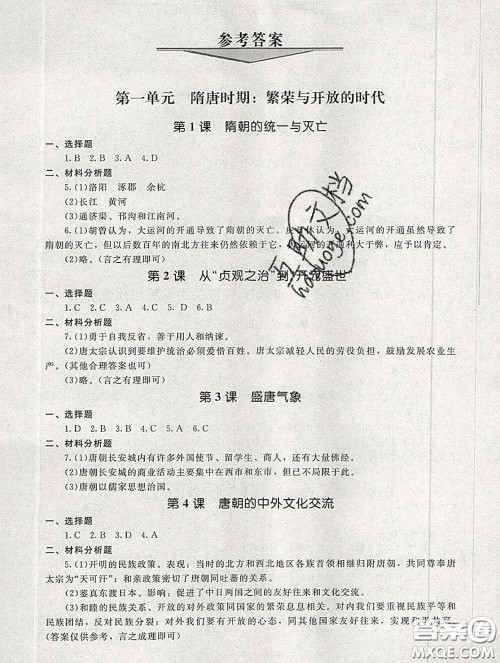 参考答案
第一单元 隋唐时期:繁荣与开放的时代
第1课 隋朝的统一与灭亡
一、选择题
1.B 2.B 3.A 4.D
二、材料分析题
5.(1)洛阳 涿郡 余杭
(2)长江 黄河
(3)通济渠、邗沟和江南河。
6.(1)胡曾认为,大运河的开通导致了隋朝的灭亡。皮日休认为,大运河的开通虽然导致了
隋朝的灭亡,但以后数百年的南北方往来仍然依赖于它,大运河的开通利大于弊,应予以肯定。
(2)略。(言之有理即可)
第2课 从“贞观之治”到“开元盛世
一、选择题
二、材料分析题
7.(1)勇于自我反省,善于用人和纳谏。
(2)唐太宗认识到要维护统治必须爱惜百姓。唐太宗减轻人民的劳役负担,鼓励发展农业生
产。(其他合理答案也可)
(3)略。(言之有理即可)
第3课 盛唐气象
一、选择题
1.C 2.B 3.A 4.C 5.A 6.C
二、材料分析题
7.(1)唐朝长安城内有许多外国使节、留学生、商人,还有大量佛经。
(2)唐朝长安城的商业活动主要集中在西市和东市,但已与民居混杂。
(3)唐朝以儒家思想治国。
第4课 唐朝的中外文化交流
一、选择题
1.C 2.B 3.D 4.A
二、材料分析题
5.(1)开明的民族政策。表现:当时的北方和西北地区各族首领相继归附唐朝,共同尊奉唐
太宗为“天可汗”;和亲政策密切了唐朝同吐蕃的关系。
(2)鉴真东渡日本。影响:促进了中日两国之间的友好往来和文化交流。
(3)和睦的民族关系、开放的对外政策同国家的繁荣息息相关。对内我们要重视民族平等和
民族团结,反对民族分裂;对外我们要有开放的心态,同其他国家友好往来,实现和平发展。
(答案仅供参考,言之成理即可)
互助文档
hazuoye.com
答案圈
MXQE.COM